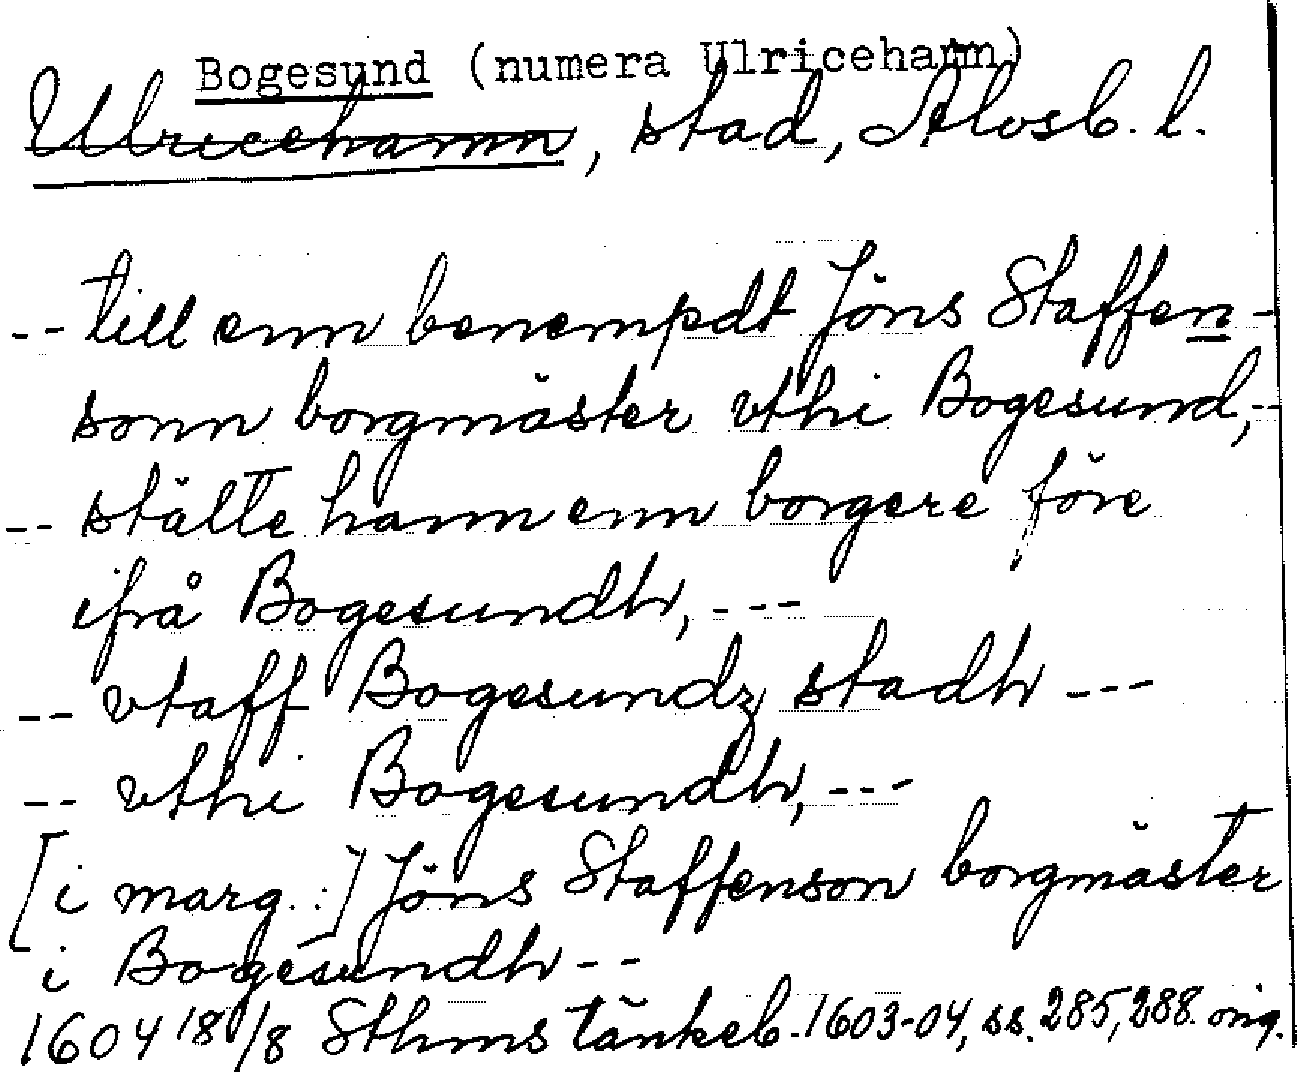 Bogesund (numera Ulricehamn)
Ulricehamn, stad, Älvsb. l.
-- till enn benempdt Jöns Staffen-
sonn borgmäster vthi Bogesund,-
-- stälte hann enn borgere före
ifrå Bogesundh, ---
-- vtaff Bogesundz stadh ---
-- vthi Bogesundh, ---
[i marg.:] Jöns Staffenson borgmäster
i Bogesundh --
1604 18/8 Sthms tänkeb. 1603-04, ss. 285, 288. orig.